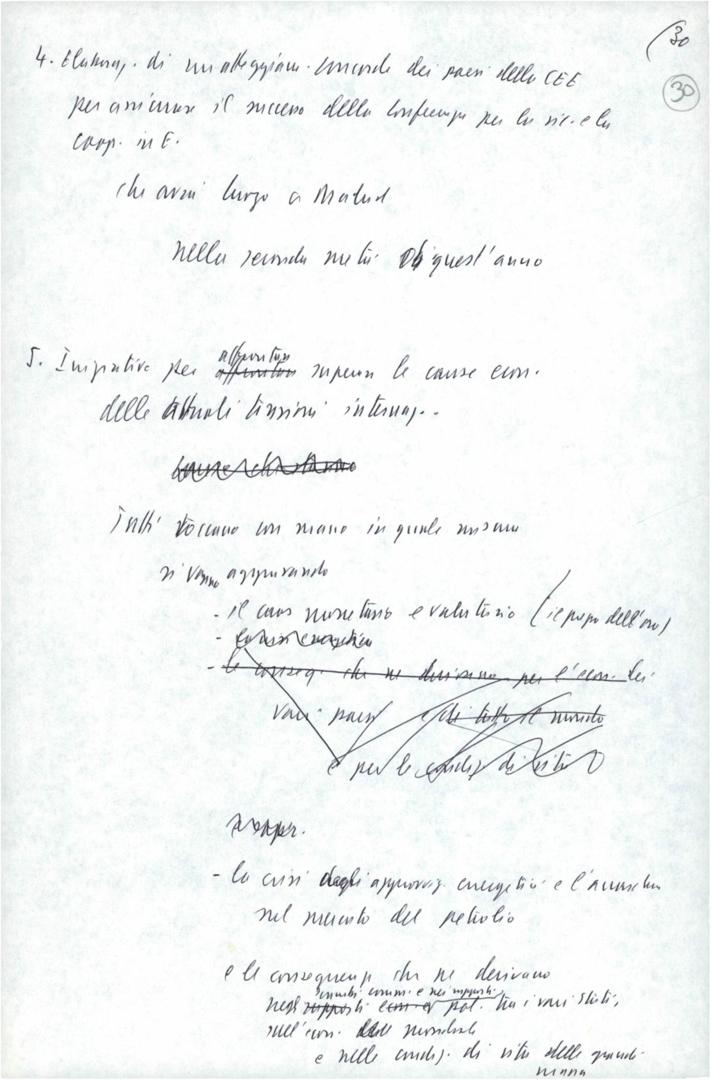 30
30
4. Elaboraz. di un atteggiam. concorde dei paesi della CEE
per assicurare il successo della Conferenza per la sic. e la
coop. in E.
che avrà luogo a Madrid
nella seconda metà di quest'anno
5. Iniziative per affrontare superare le cause econ.
delle attuali tensioni internaz.
Tutti toccano con mano in quale misura
si vanno aggravando
- il caos monetario e valutario (il prezzo dell'oro)
- la crisi energetica
- le conseg. che ne derivano per l'econ. dei
vari paesi di tutto il mondo
e per le condiz. di vita
- la crisi degli approvv. energetici e l'anarchia
nel mercato del petrolio
e le conseguenze che ne derivano
scambi comm. e nei rapporti
negli rapporti econ. e pol. tra i vari Stati,
sull'econ. mondiale
e nelle condiz. di vita delle grandi
massa